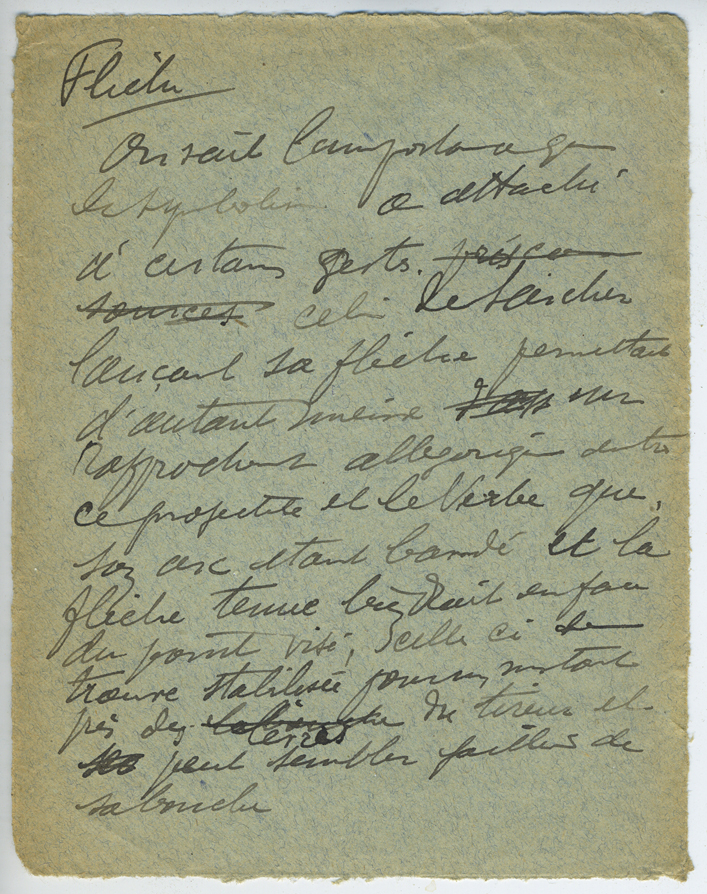 Flèche
On sait l'importance que
le symbolisme a attaché
à certains gestes. 
sources celui de l'archer
lançant sa flèche permettait
d'autant mieux un
rapprochement allégorique entre
ce projectile et le Verbe que,
son arc étant bandé et la
flèche tenue bien droit en face
du point visé, celle ci se
trouve stabilisée pour un instant
près des lèvres du tireur et
peut sembler jaillir de
sa bouche